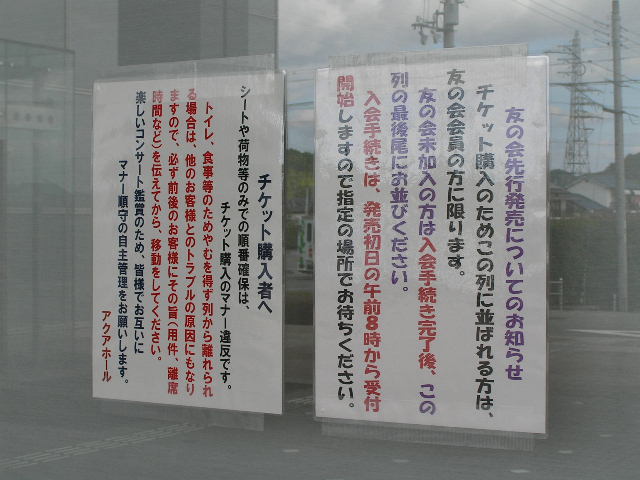 友の会先行発売についてのお知らせ
チケット購入のためこの列に並ばれる方は、
友の会会員の方に限ります。
友の会未加入の方は入会手続き完了後、この
列の最後尾にお並びください。
入会手続きは、発売初日の午前8時から受付
開始しますので指定の場所でお待ちください。
チケット購入者へ
シートや荷物等のみでの順番確保は、
チケット購入のマナー違反です。
トイレ、食事等のためやむを得ず列から離れられ
る場合は、他のお客様とのトラブルの原因にもなり
ますので、必ず前後のお客様にその旨(用件、離席
時間など)を伝えてから、移動をしてください。
楽しいコンサート鑑賞のため、皆様でお互いに
マナー順守の自主管理をお願いします。
アクアホール